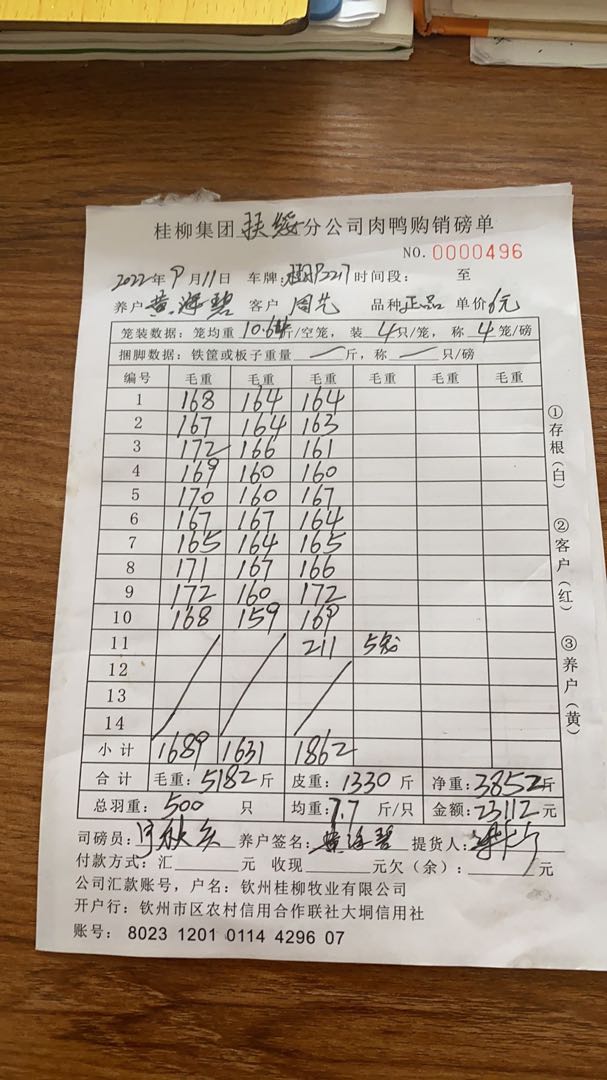 桂柳集团扶绥分公司肉鸭购销磅单
NO.0000496
2022年9月11日 车牌: 时间段: 至
养户黄海碧 客户 周先 品种正品 单价6元
笼装数据: 笼均重10.64斤/空笼, 装4只/笼, 称4笼/磅
捆脚数据: 铁筐或板子重量 斤, 称 只/磅
编号 毛重 毛重 毛重 毛重 毛重 毛重
1 168 164 164
2 167 164 163
3 172 166 161
4 169 160 160
5 170 160 167
6 167 167 164
7 165 164 165
8 171 167 166
9 172 160 172
10 168 159 169
11 211 5
12
13
14
小计 1689 1631 1862
合计 毛重: 5182斤 皮重: 1330斤 净重: 3852斤
总羽重: 500 只 均重: 7.7 斤/只 金额: 23112元
司磅员: 养户签名: 黄海碧 提货人:
付款方式: 汇 元 收现 元欠(余): 元
公司汇款账号, 户名: 钦州桂柳牧业有限公司
开户行: 钦州市区农村信用合作联社大垌信用社
账号: 8023 1201 0114 4296 07
①存根(白)
②客户(红)
③养户(黄)